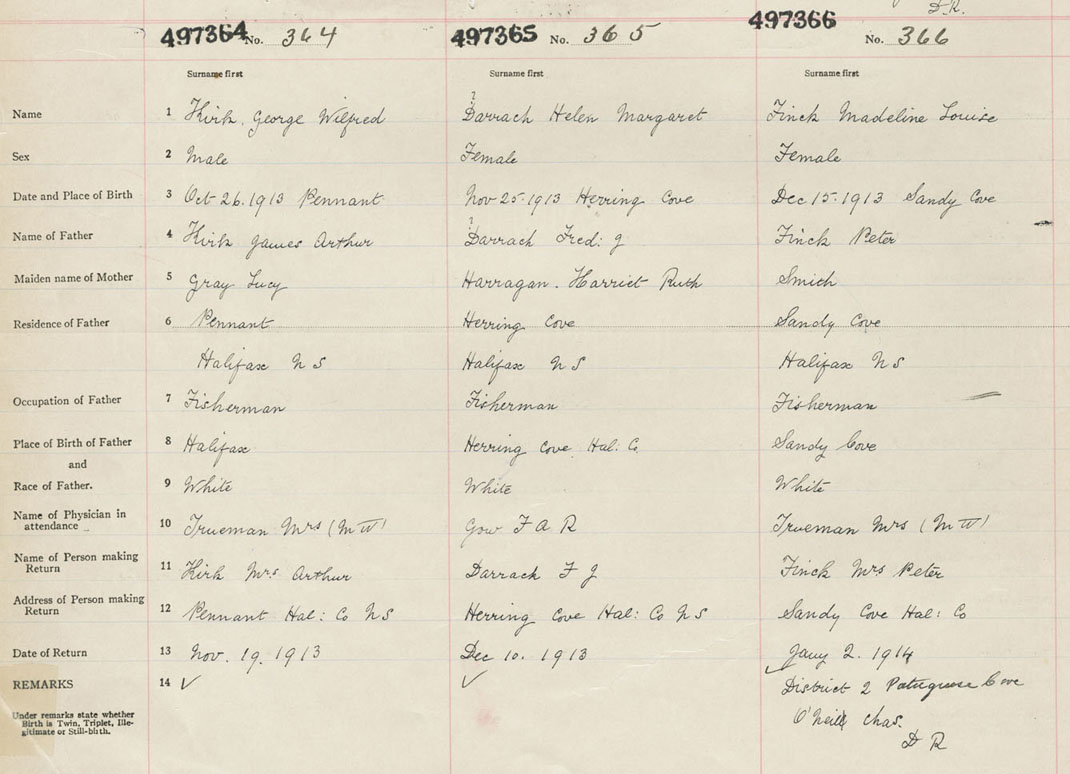 D.R.
497364 No. 364 497365 No. 365 497366 No. 366
Surname first Surname first Surname first
Name 1 Kirk. George Wilfred Darrach Helen Margaret Finck Madeline Louise
Sex 2 Male Female Female
Date and Place of Birth 3 Oct 26.1913 Pennant Nov 25.1913 Herring Cove Dec 15.1913 Sandy Cove
Name of Father 4 Kirk James Arthur ? Darrach Fred: J Finck Peter
Maiden name of Mother 5 Gray Lucy Harragan. Harriet Ruth Smich
Residence of Father 6 Pennant Herring Cove Sandy Cove
Halifax N S Halifax N S Halifax N S
Occupation of Father 7 Fisherman Fisherman Fisherman
Place of Birth of Father 8 Halifax Herring Cove Hal: Co Sandy Cove
and
Race of Father. 9 White White White
Name of Physician in
attendance 10 Trueman Mrs (M W) Gow F A R Trueman Mrs (M W)
Name of Person making
Return 11 Kirk Mrs Arthur Darrack F J Finck Mrs Peter
Address of Person making
Return 12 Pennant Hal: Co N S Herring Cove Hal: Co N S Sandy Cove Hal: Co
Date of Return 13 Nov. 19. 1913 Dec 10. 1913 Jany 2. 1914
REMARKS 14 ✓ ✓ ✓ District 2 Portuguese Cove
Under remarks state whether
Birth is Twin, Triplet, Ille-
gitimate or Still-birth.
O'Neill Chas.
D R